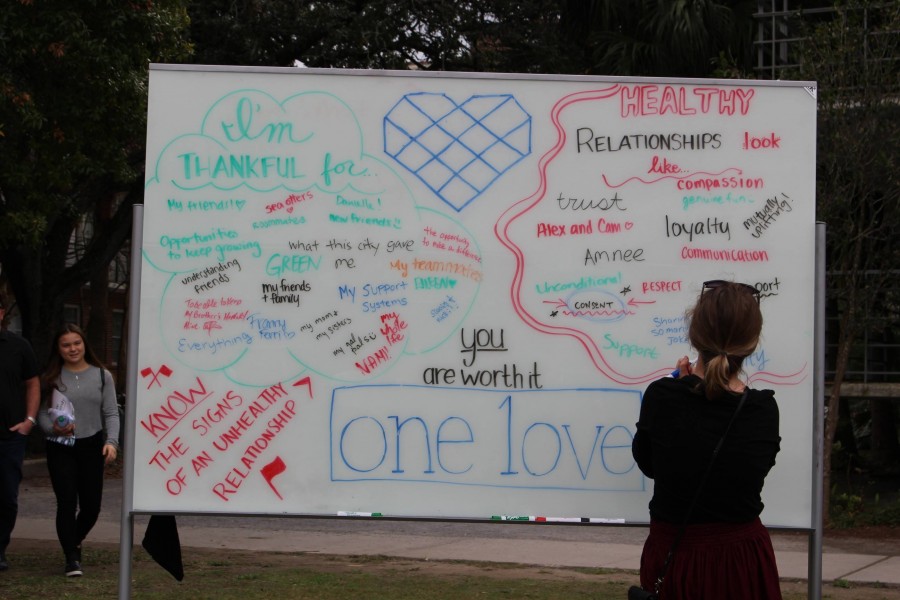 I'm
THANKFUL for...
My friends!
sea otters
Danielle!
roommates
new friends
Opportunities
to keep growing
what this city gave
me
the opportunity
to make a difference
understanding
friends
GREEN
My teammates
my friends
+ family
My Support
Systems
Everything
my mom
my sisters
my
whole
life
YAMI!
you
are worth it
one love
KNOW
THE SIGNS
OF AN UNHEALTHY
RELATIONSHIP
HEALTHY
RELATIONSHIPS look
like...
compassion
genuine fun
trust
Alex and Cam
loyalty
mutually
uplifting!
Amnee
communication
Unconditional!
RESPECT
CONSENT
Support